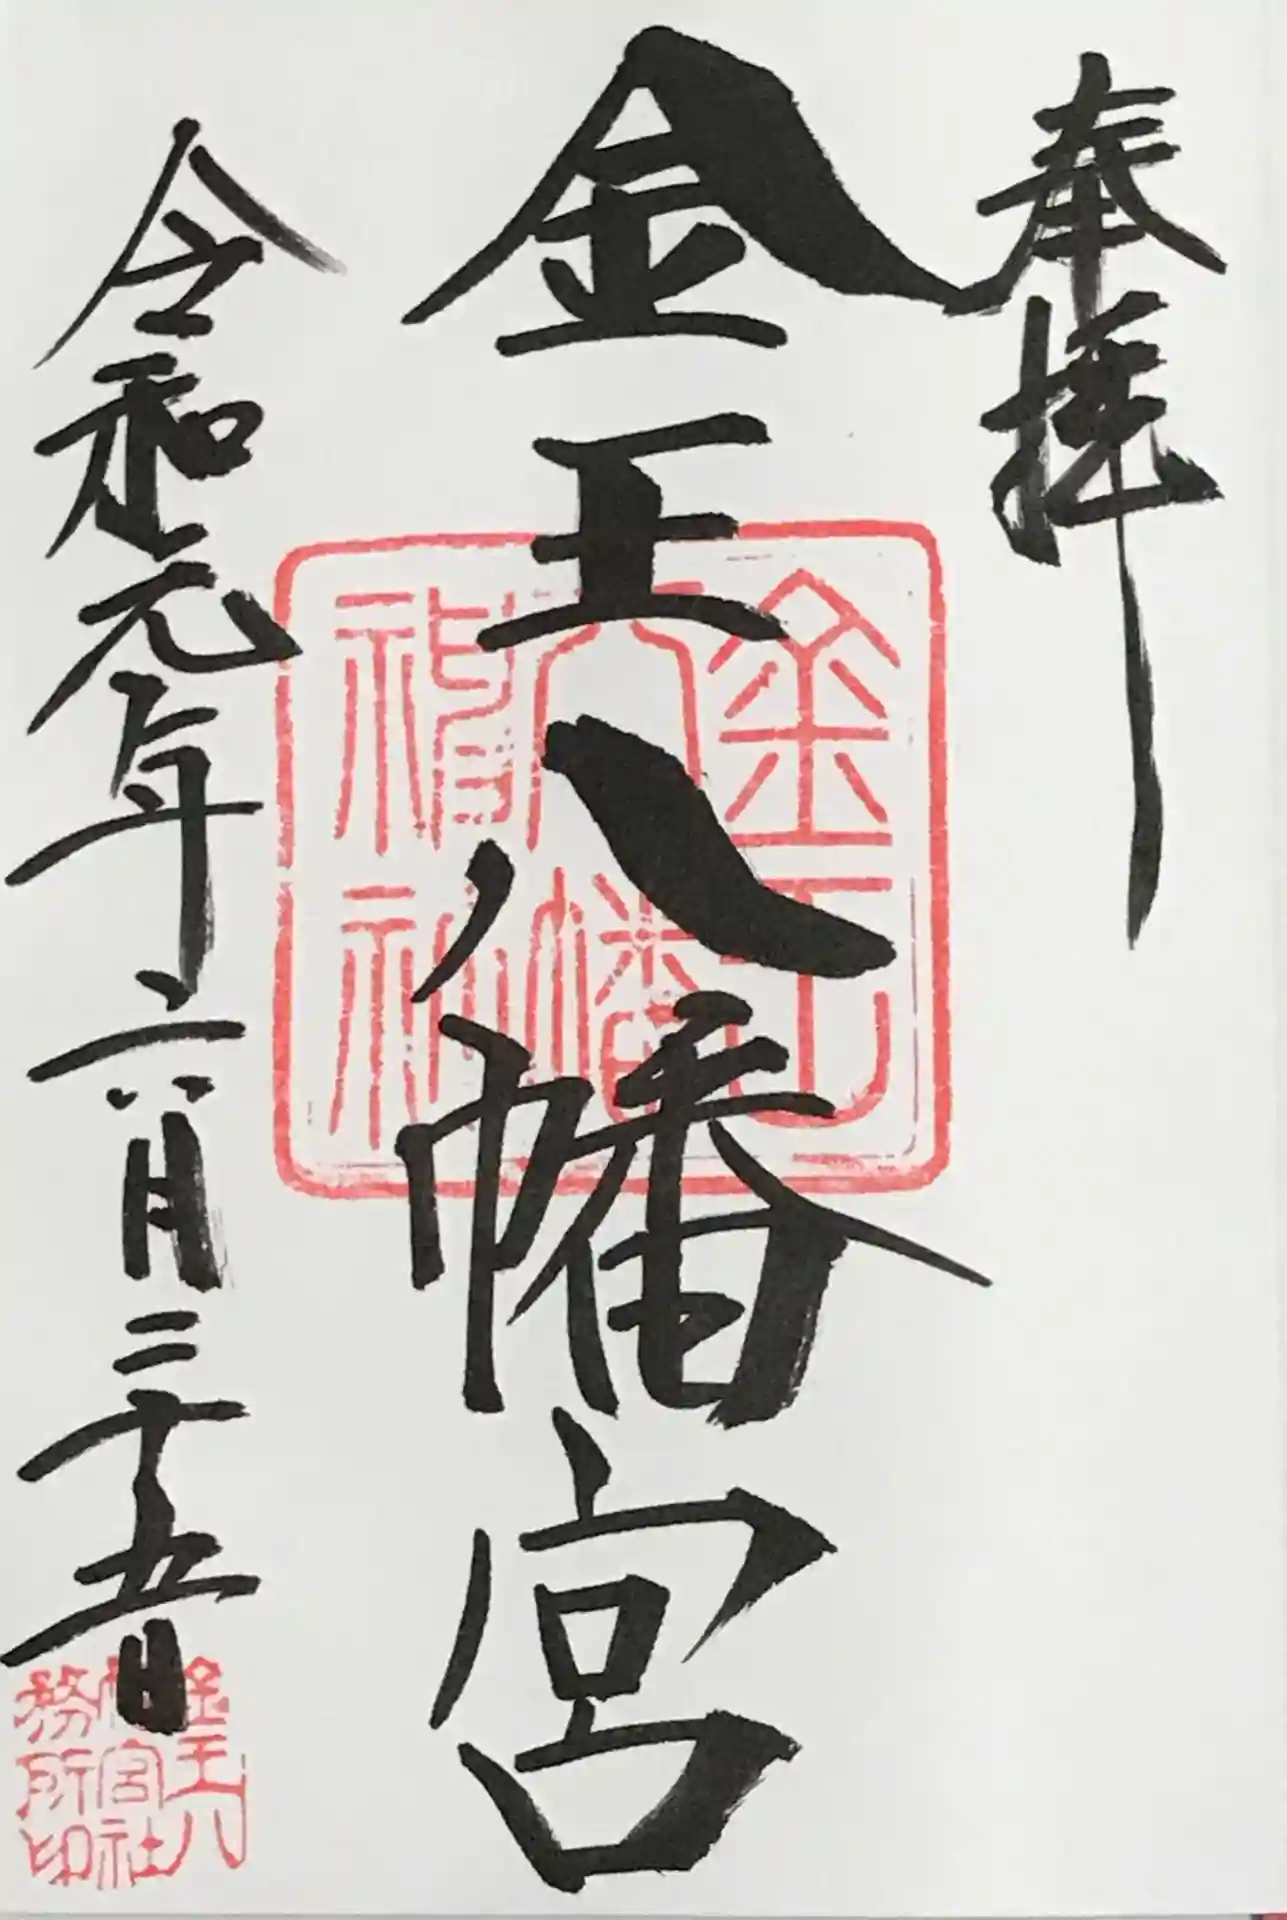 奉拝
金王八幡宮
令和元年六月二十五日
金王
八幡
金王八
幡宮社
務所印